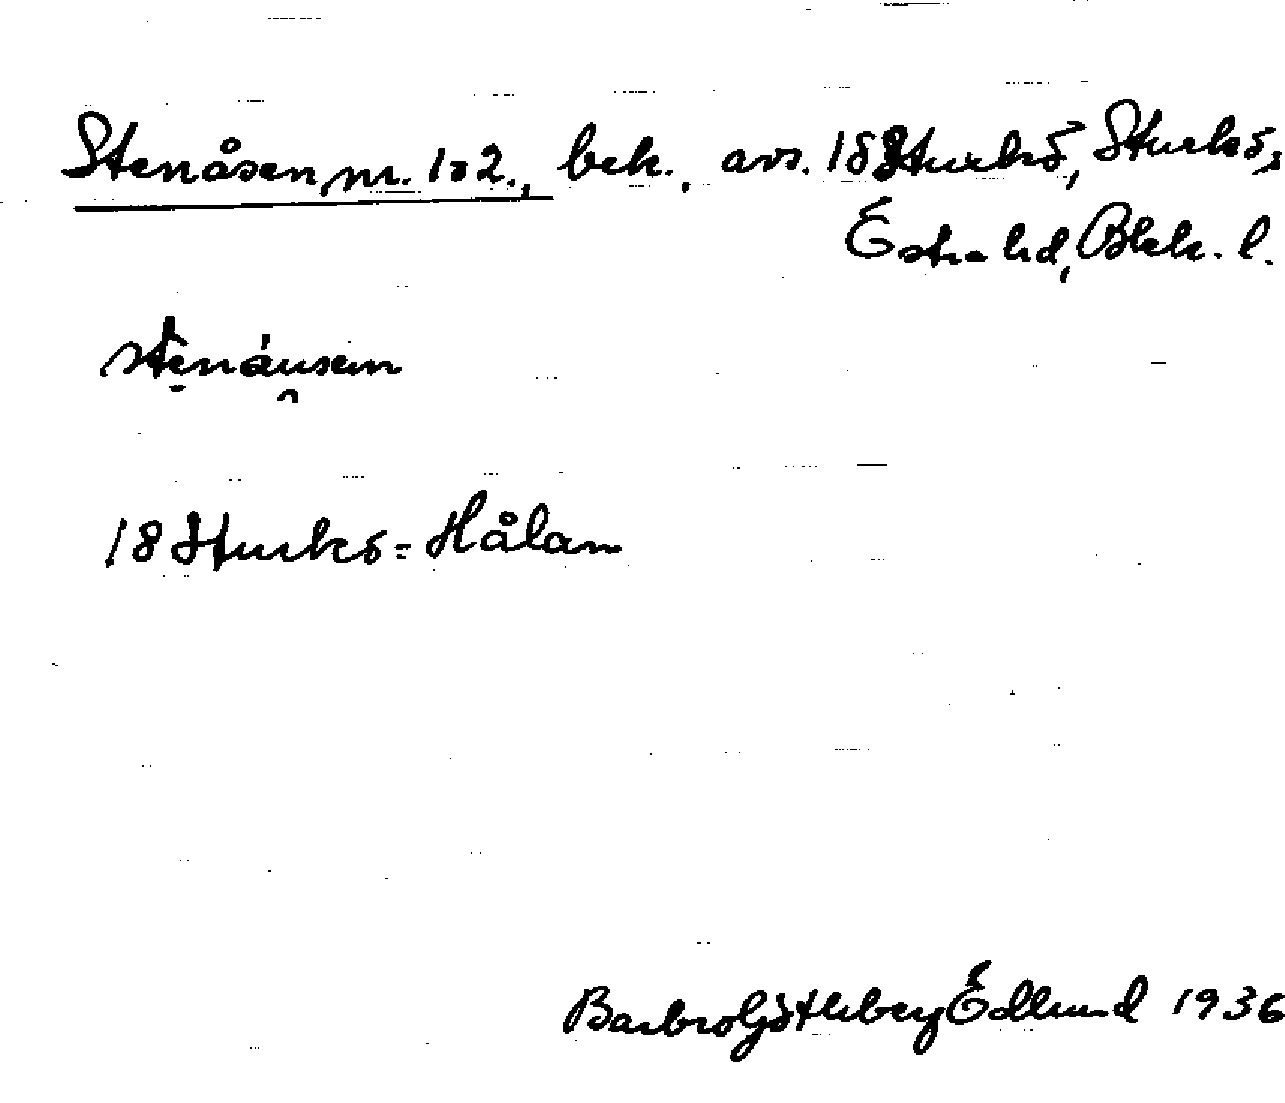 Stenåsen, nr. 1o2., bek., avs. 18 Sturkö, Sturkö s,
Östra hd, Blek. l.
stenáusen
18 Sturkö = Hålan
Barbro Götleberg Edlund 1936